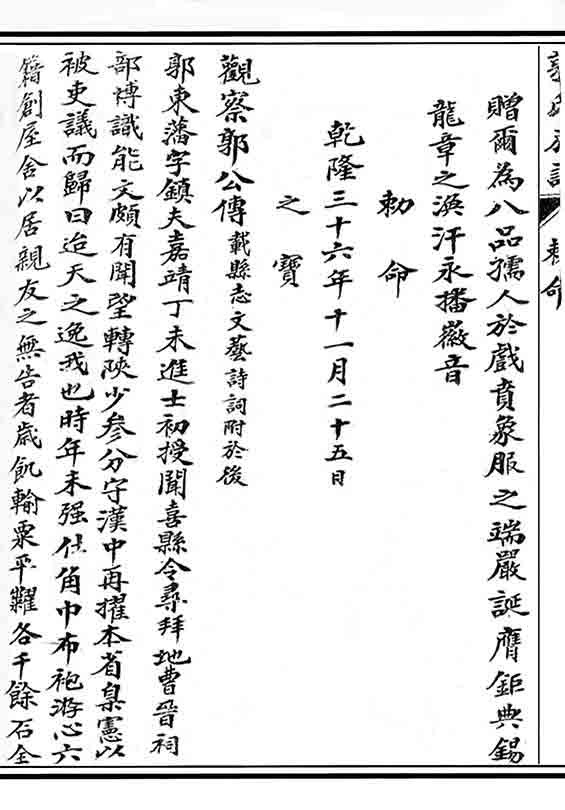 敕命
贈爾為八品孺人於戲賁象服之端嚴誕膺鉅典錫
龍章之渙汗永播徽音
勅命
乾隆三十六年十一月二十五日
之寶
觀察郭公傳載縣志文藝詩詞附於後
郭東藩字鎮夫嘉靖丁未進士初授聞喜縣令尋拜地曹晉祠
部博識能文頗有聞望轉陝少參分守漢中再擢本省臬憲以
被吏議而歸曰迨天之逸我也時年未强仕角巾布袍游心六
籍創屋舍以居親友之無告者歲飢輸粟平糶各千餘石全